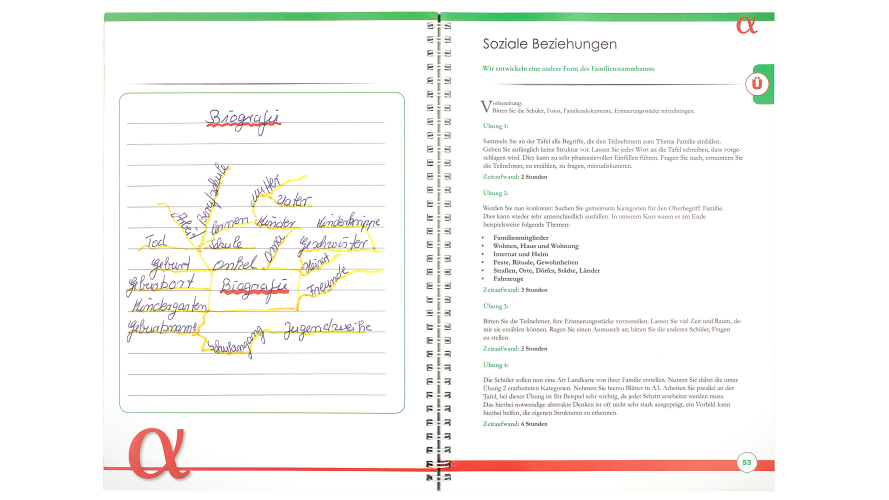 Biografie
Mutter
Vater
Arbeit
Berufsschule
lernen
Kinder
Kinderkrippe
Tod
Schule
Oma
Geschwister
Geburt
Onkel
Heirat
Geburtsort
Biografie
Freunde
Kindergarten
Geburtsname
Schulanfang
Jugendweihe
α
α
Soziale Beziehungen
Wir entwickeln eine andere Form des Familienstammbaums
Ü
Vorbereitung:
Bitten Sie die Schüler, Fotos, Familiendokumente, Erinnerungsstücke mitzubringen.
Übung 1:
Sammeln Sie an der Tafel alle Begriffe, die den Teilnehmern zum Thema Familie einfallen.
Geben Sie anfänglich keine Struktur vor. Lassen Sie jedes Wort an die Tafel schreiben, dass vorge-
schlagen wird. Dies kann zu sehr phantasievollen Einfällen führen. Fragen Sie nach, ermuntern Sie
die Teilnehmer, zu erzählen, zu fragen, mitzudiskutieren.
Zeitaufwand: 2 Stunden
Übung 2:
Werden Sie nun konkreter: Suchen Sie gemeinsam Kategorien für den Oberbegriff Familie.
Dies kann wieder sehr unterschiedlich ausfallen. In unserem Kurs waren es am Ende
beispielsweise folgende Themen:
• Familienmitglieder
• Wohnen, Haus und Wohnung
• Internat und Heim
• Feste, Rituale, Gewohnheiten
• Straßen, Orte, Dörfer, Städte, Länder
• Fahrzeuge
Zeitaufwand: 3 Stunden
Übung 3:
Bitten Sie die Teilnehmer, ihre Erinnerungsstücke vorzustellen. Lassen Sie viel Zeit und Raum, da-
mit sie erzählen können. Regen Sie einen Austausch an; bitten Sie die anderen Schüler, Fragen
zu stellen.
Zeitaufwand: 2 Stunden
Übung 4:
Die Schüler sollen nun eine Art Landkarte von ihrer Familie erstellen. Nutzen Sie dabei die unter
Übung 2 erarbeiteten Kategorien. Nehmen Sie hierzu Blätter in A3. Arbeiten Sie parallel an der
Tafel, bei dieser Übung ist Ihr Beispiel sehr wichtig, da jeder Schritt erarbeitet werden muss.
Das hierbei notwendige abstrakte Denken ist oft nicht sehr stark ausgeprägt, ein Vorbild kann
hierbei helfen, die eigenen Strukturen zu erkennen.
Zeitaufwand: 6 Stunden
53